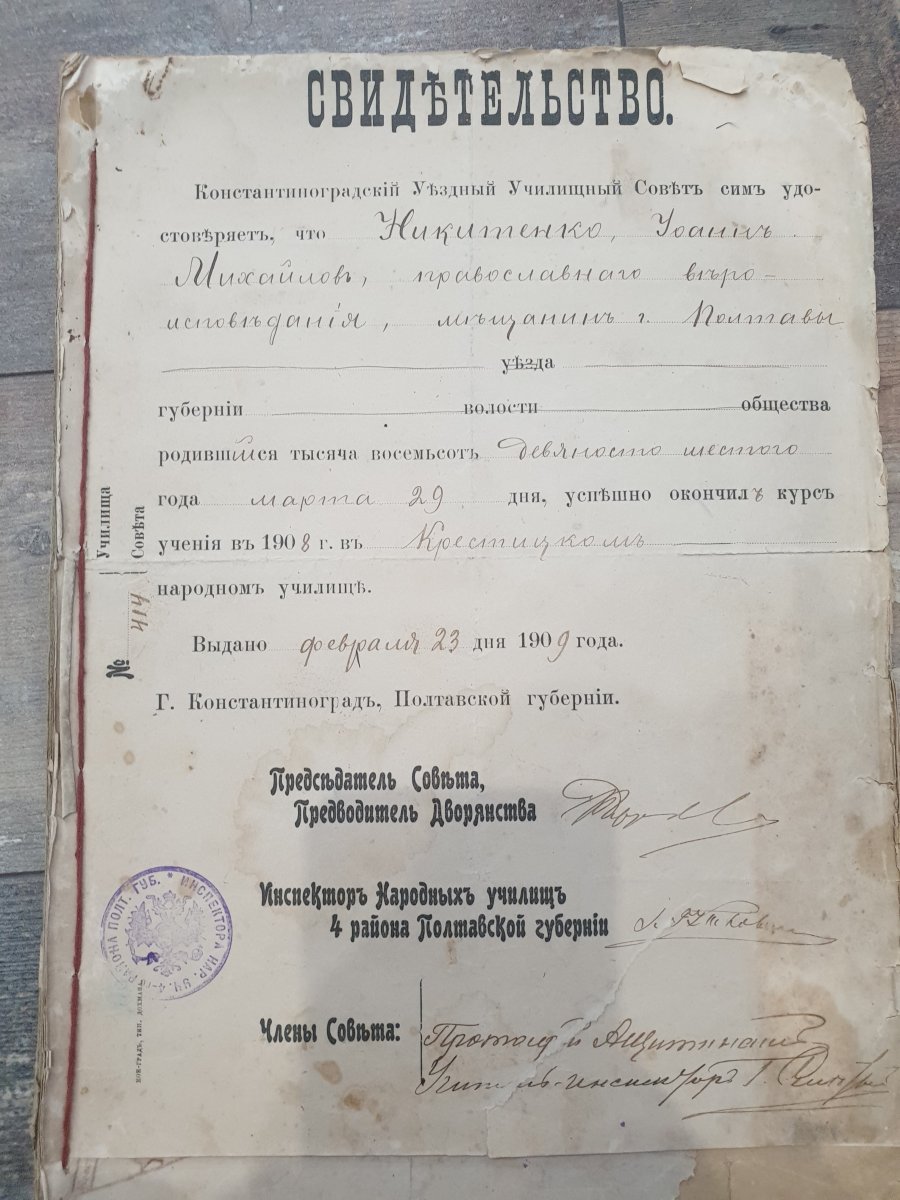 СВИДѢТЕЛЬСТВО.
Константиноградскій Уѣздный Училищный Совѣтъ симъ удо-
стовѣряетъ, что Никитенко, Іоаннъ
Михайловъ, православнаго вѣро-
исповѣданія, мѣщанинъ г. Полтавы
уѣзда
губерніи волости общества
родившійся тысяча восемьсотъ девяносто шестого
года марта 29 дня, успѣшно окончилъ курсъ
ученія въ 1908 г. въ Крестицкомъ
народномъ училищѣ.
Выдано февраля 23 дня 1909 года.
Г. Константиноградъ, Полтавской губерніи.
Училища
Совѣта
№ 414
Предсѣдатель Совѣта,
Предводитель Дворянства
Инспекторъ Народныхъ училищъ
4 района Полтавской губерніи
ИНСПЕКТОРА НАР. УЧ. 4-го РАЙОНА ПОЛТ. ГУБ. *
Члены Совѣта:
Учитель-инспекторъ Г.